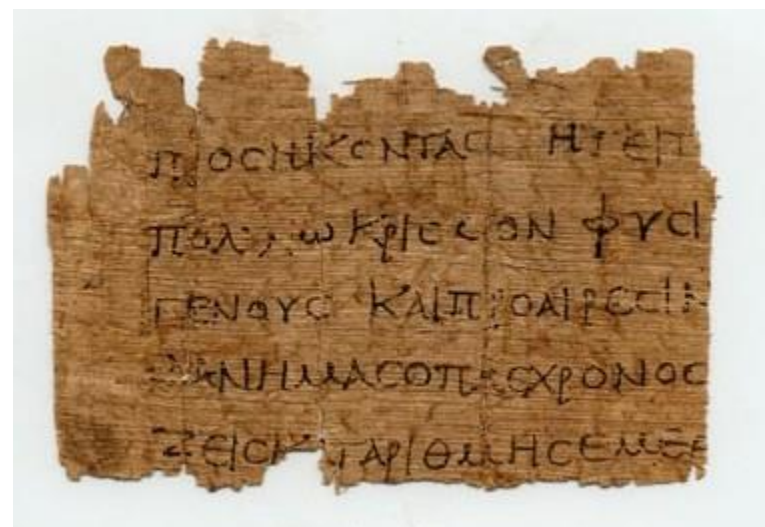 ΠΡΟCΗΚΟΝΤΑC
ΠΟΛΛѠ ΚΡΙCCΟΝ ΦΥCΙ
ΓΕΝΟΥC ΚΑΙ ΠΡΟΑΙΡΕCΙΝ
ΑΝ ΗΜΑC Ο ΠΑC ΧΡΟΝΟC
ΚΑΤΑΡΙΘΜΗCΕ